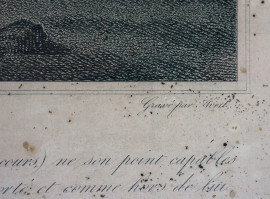 Gravé par
cours) ne son point capables
et comme hors de lui